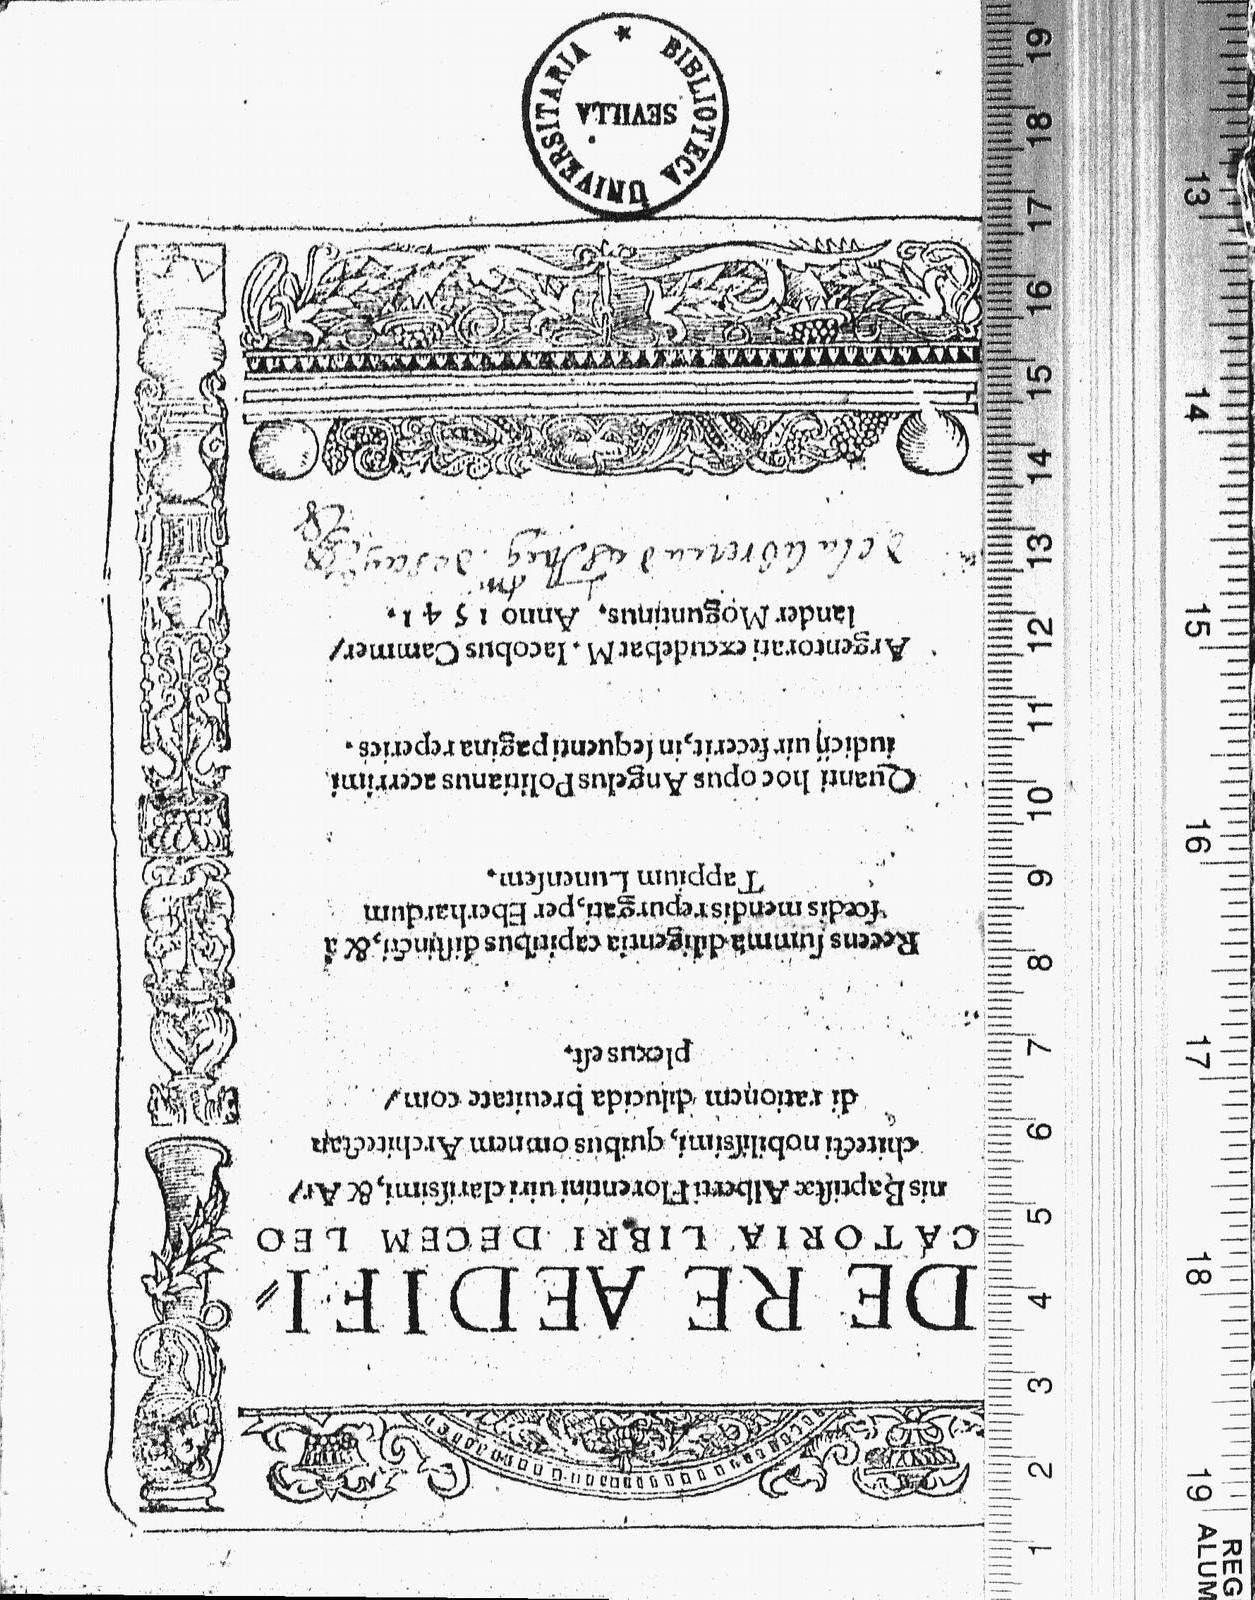 DE RE AEDIFI⸗
CATORIA LIBRI DECEM LEO
nis Baptiſtæ Alberti Florentini uiri clariſsimi, & Ar/
chitecti nobiliſsimi, quibus omnem Architectan
di rationem dilucida breuitate com/
plexus eſt.
Recens ſumma diligentia capitibus diſtincti, & à
fœdis mendis repurgati, per Eberhardum
Tappium Lunenſem.
Quanti hoc opus Angelus Politianus acerrimi
iudicij uir fecerit, in ſequenti pagina reperies.
Argentorati excudebat M. Iacobus Cammer/
lander Moguntinus. Anno 1541.
de la libreria
BIBLIOTECA UNIVERSITARIA
SEVILLA
1 2 3 4 5 6 7 8 9 10 11 12 13 14 15 16 17 18 19
13 14 15 16 17 18 19
REG
ALUM